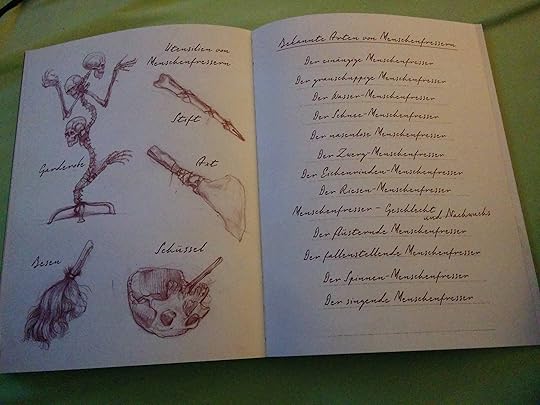 Utensilien von
Menschenfressern
Stift
Garderobe
Axt
Besen
Schüssel
Bekannte Arten von Menschenfressern
Der einäugige Menschenfresser
Der grauschuppige Menschenfresser
Der Wasser-Menschenfresser
Der Schnee-Menschenfresser
Der nasenlose Menschenfresser
Der Zwerg-Menschenfresser
Der Eichenrinden-Menschenfresser
Der Riesen-Menschenfresser
Menschenfresser - Geschlecht
und Nachwuchs
Der flüsternde Menschenfresser
Der fallenstellende Menschenfresser
Der Spinnen-Menschenfresser
Der singende Menschenfresser